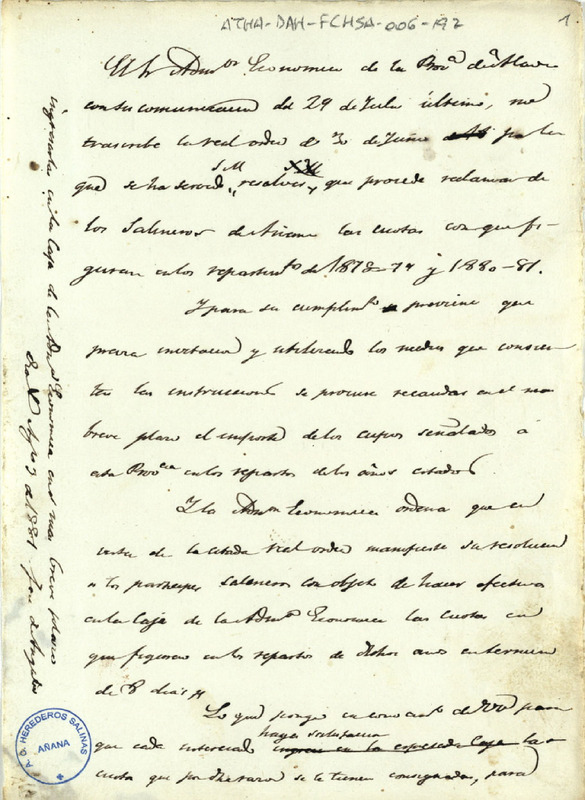 ATHA-DAH-FCHSA-006-192
1.
El Sr Admor Economico de la Prova de Alava
con su comunicacion del 29 de Julio último, me
trascribe la real orden de 30 de Junio por la
que se ha servido S.M. resolver, que procede reclamar de
los Salineros de Añana las cuotas con que fi-
guran en los repartimtos de 1873-74 y 1880-81.
Y para su cumplimto previene que
previa invitacion y utilizando los medios que consien-
ten las instrucciones se procure recaudar en el mas
breve plazo el importe de los cupos señalados á
esta Provcia en los repartos de los años citados.
Y la Admon Economica ordena que en
vista de la citada real orden manifieste su resolucion
a los participes salineros con objeto de hacer efectiva
en la Caja de la Admon Economica las cuotas en
que figuran en los repartos de dichos años en termino
de 8 dias.
Lo que pongo en conocimto de VV para
que cada interesado haga satisfacer ingrese en la espresada Caja la
cuota que por dha razon se le tienen consignada, para
ingresarla en la Caja de la Admon Economica en el mas breve plazo
Agosto de 1881
A. C. HEREDEROS SALINAS
AÑANA